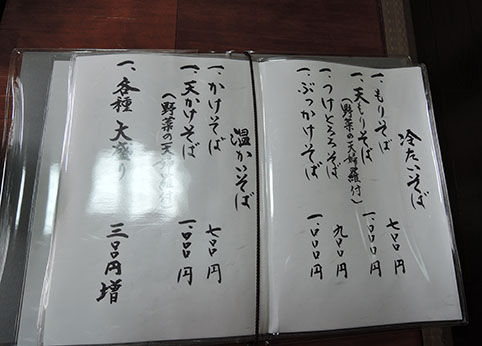 冷たいそば
一、もりそば 七〇〇円
一、天もりそば 一、〇〇〇円
(野菜の天婦羅付)
一、つけとろろそば 九〇〇円
一、ぶっかけそば 一、〇〇〇円
温かいそば
一、かけそば 七〇〇円
一、天かけそば 一、〇〇〇円
(野菜の天
一、各種 大盛り 三〇〇円増